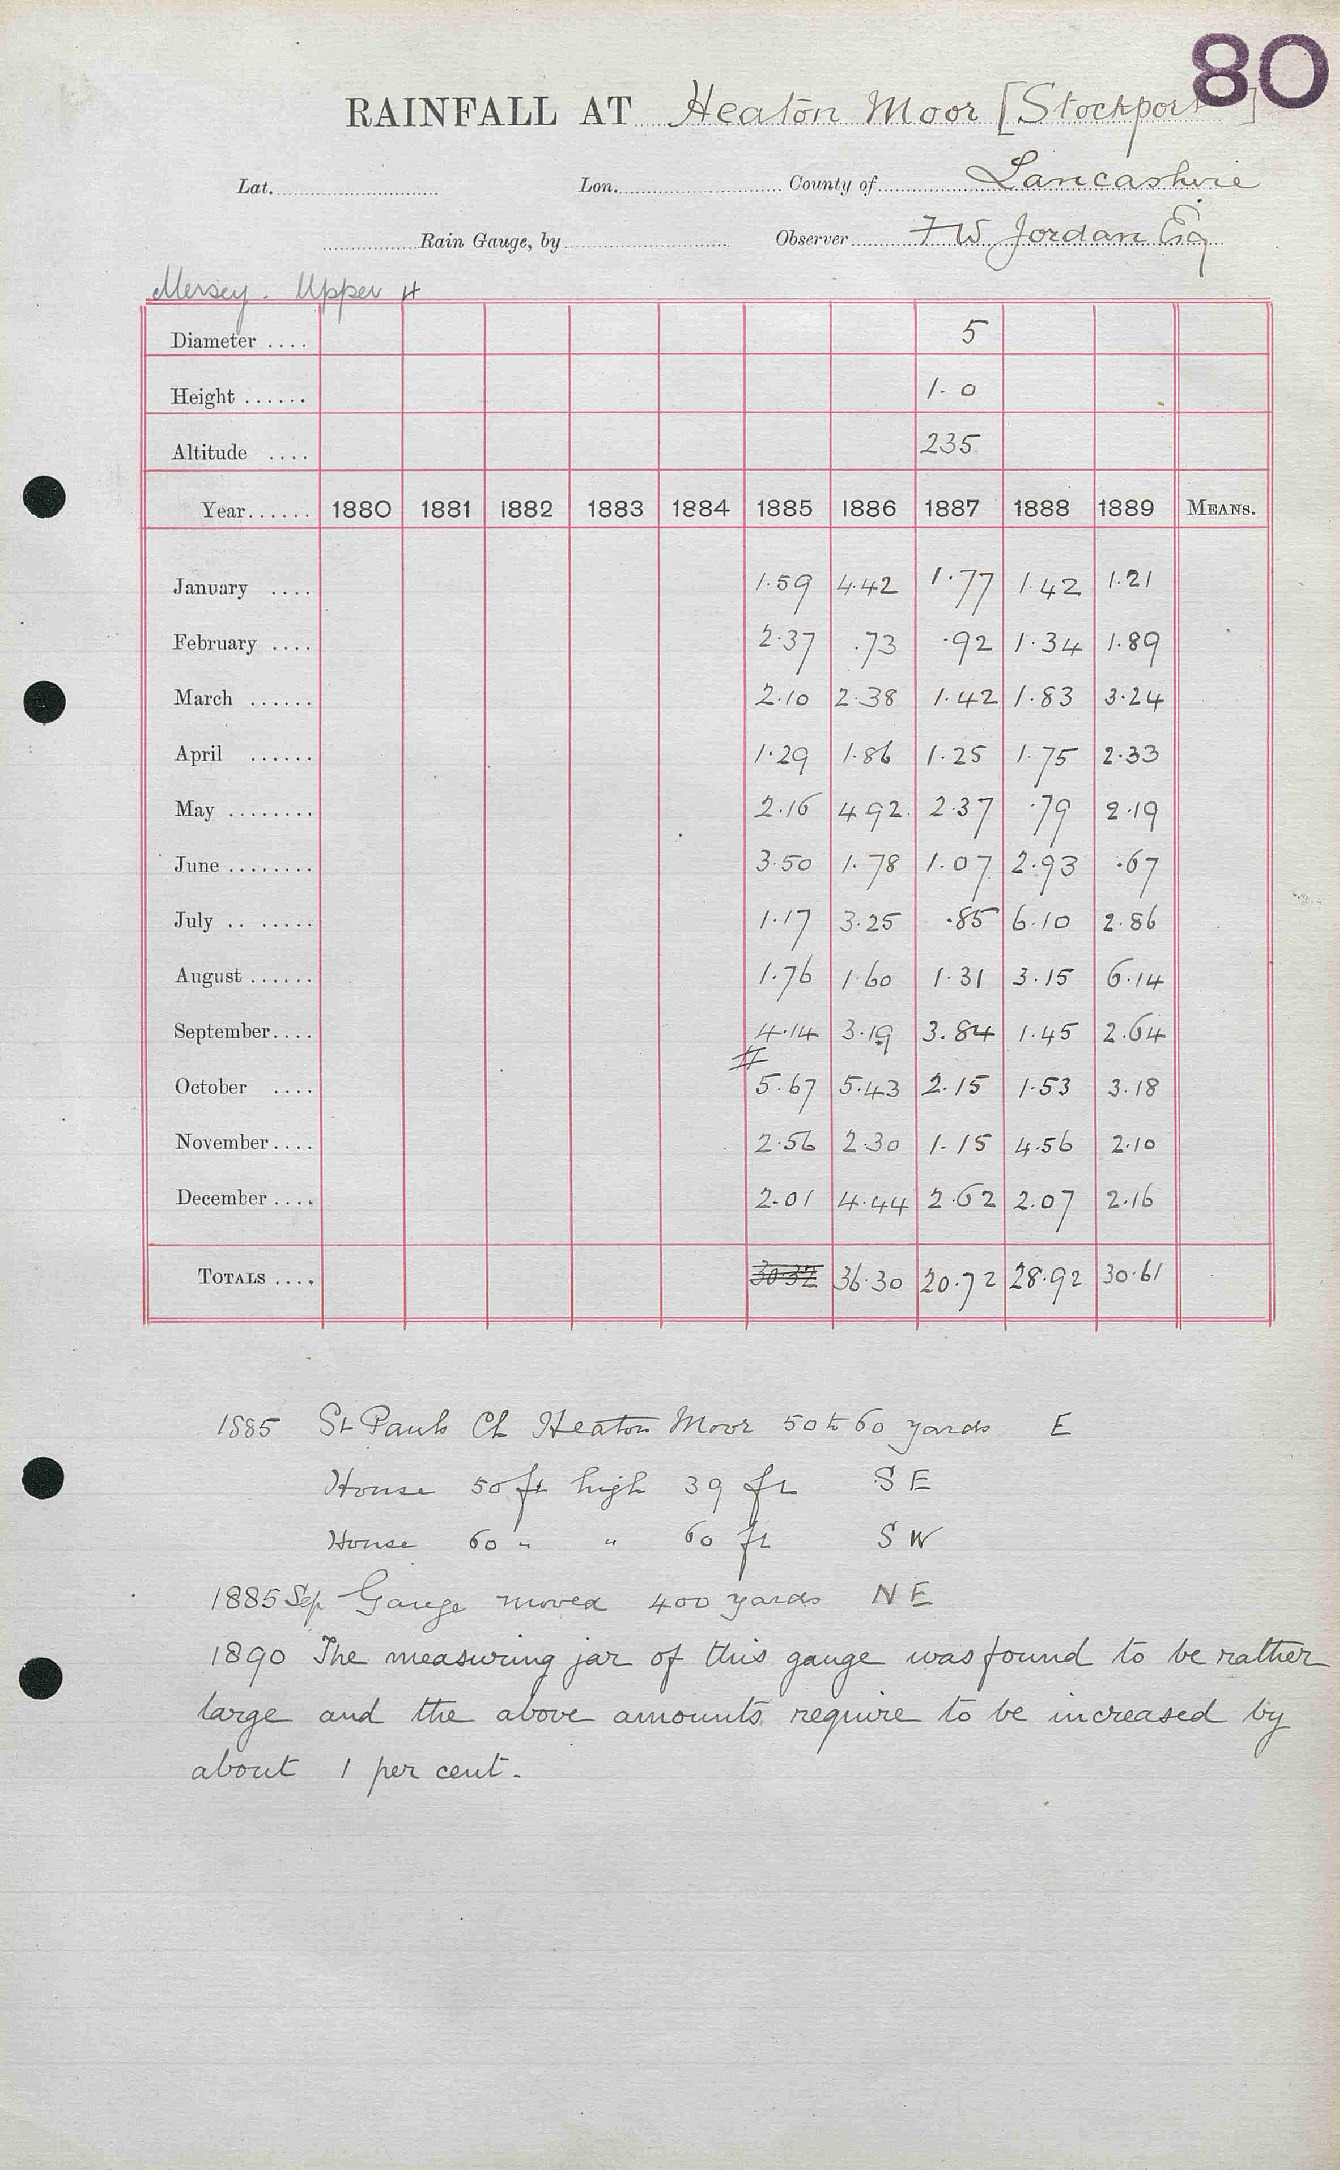 80
RAINFALL AT Heaton Moor [Stockport]
Lat. Lon. County of Lancashire
Rain Gauge, by Observer F W Jordan Esq
Mersey. Upper H
Diameter .... 5
Height ...... 1. 0
Altitude .... 235
Year...... 1880 1881 1882 1883 1884 1885 1886 1887 1888 1889 MEANS.
January .... 1.59 4.42 1.77 1.42 1.21
February .... 2.37 .73 .92 1.34 1.89
March ...... 2.10 2.38 1.42 1.83 3.24
April ...... 1.29 1.86 1.25 1.75 2.33
May ........ 2.16 4.92 2.37 .79 2.19
June ........ 3.50 1.78 1.07 2.93 .67
July .. ..... 1.17 3.25 .85 6.10 2.86
August ...... 1.76 1.60 1.31 3.15 6.14
September.... 4.14 3.19 3.84 1.45 2.64
October .... 5.67 5.43 2.15 1.53 3.18
November.... 2.56 2.30 1.15 4.56 2.10
December .... 2.01 4.44 2.62 2.07 2.16
TOTALS .... 30.32 36.30 20.72 28.92 30.61
1885 St Pauls Ch Heaton Moor 50 to 60 yards E
House 50 ft high 39 ft S E
House 60 " " 60 ft S W
1885 Sep Gauge moved 400 yards N E
1890 The measuring jar of this gauge was found to be rather
large and the above amounts require to be increased by
about 1 per cent.